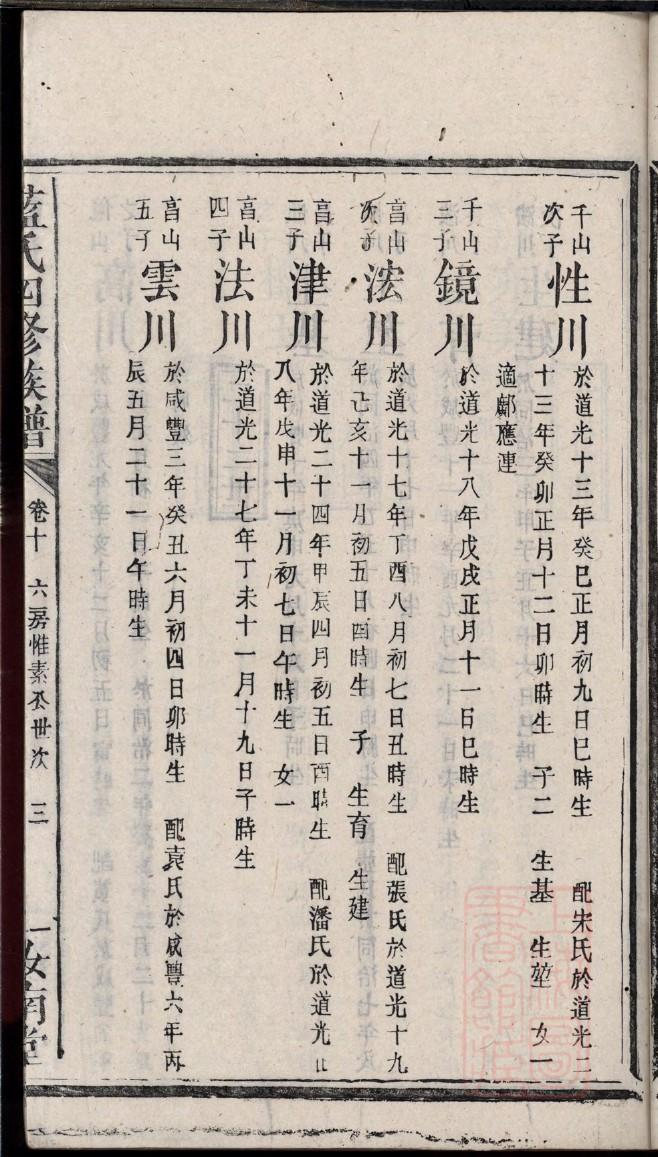 千山次子 性川 於道光十三年癸巳正月初九日巳時生 配宋氏於道光二
十三年癸卯正月十二日卯時生 子二 生基 生堃 女一
適鄺應連
千山三子 鏡川 於道光十八年戊戌正月十一日巳時生
亯山次子 浤川 於道光十七年丁酉八月初七日丑時生 配張氏於道光十九
年己亥十一月初五日酉時生 子 生育 生建
亯山三子 津川 於道光二十四年甲辰四月初五日酉時生 配潘氏於道光廿
八年戊申十一月初七日午時生 女一
亯山四子 法川 於道光二十七年丁未十一月十九日子時生
亯山五子 雲川 於咸豐三年癸丑六月初四日卯時生 配袁氏於咸豐六年丙
辰五月二十一日午時生
藍氏四修族譜 卷十 六房惟素公世次 三 汝南堂